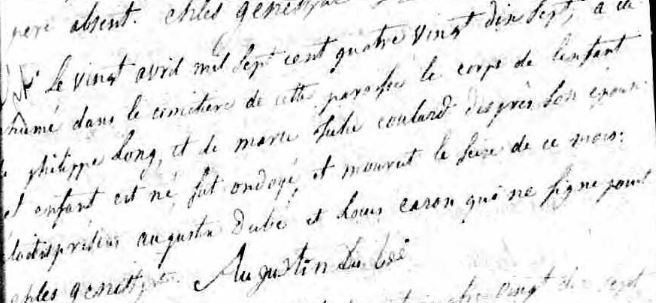 pere absent. chles genest ptre
Le vingt avril mil sept cent quatre vingt dix sept, a ete
inhumé dans le cimetiere de cette paroisse le corps de lenfant
de philippe Long, et de marie Julie coulard desprès son epouse
cet enfant est né, fut ondoyé, et mourut le seize de ce mois:
etoient presens augustin Dubé et Louis caron qui ne signe point
chles genest ptre Augustin Dubé
vingt dix sept